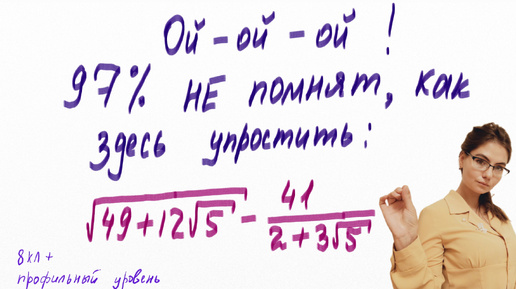 Ой - ой - ой !
97% НЕ помнят, как
здесь упростить:
√(49+12√5) - 41/(2+3√5)
8 кл +
профильный уровень